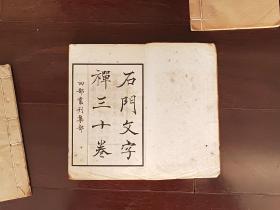 石門文字
禪三十卷
四部叢刊集部